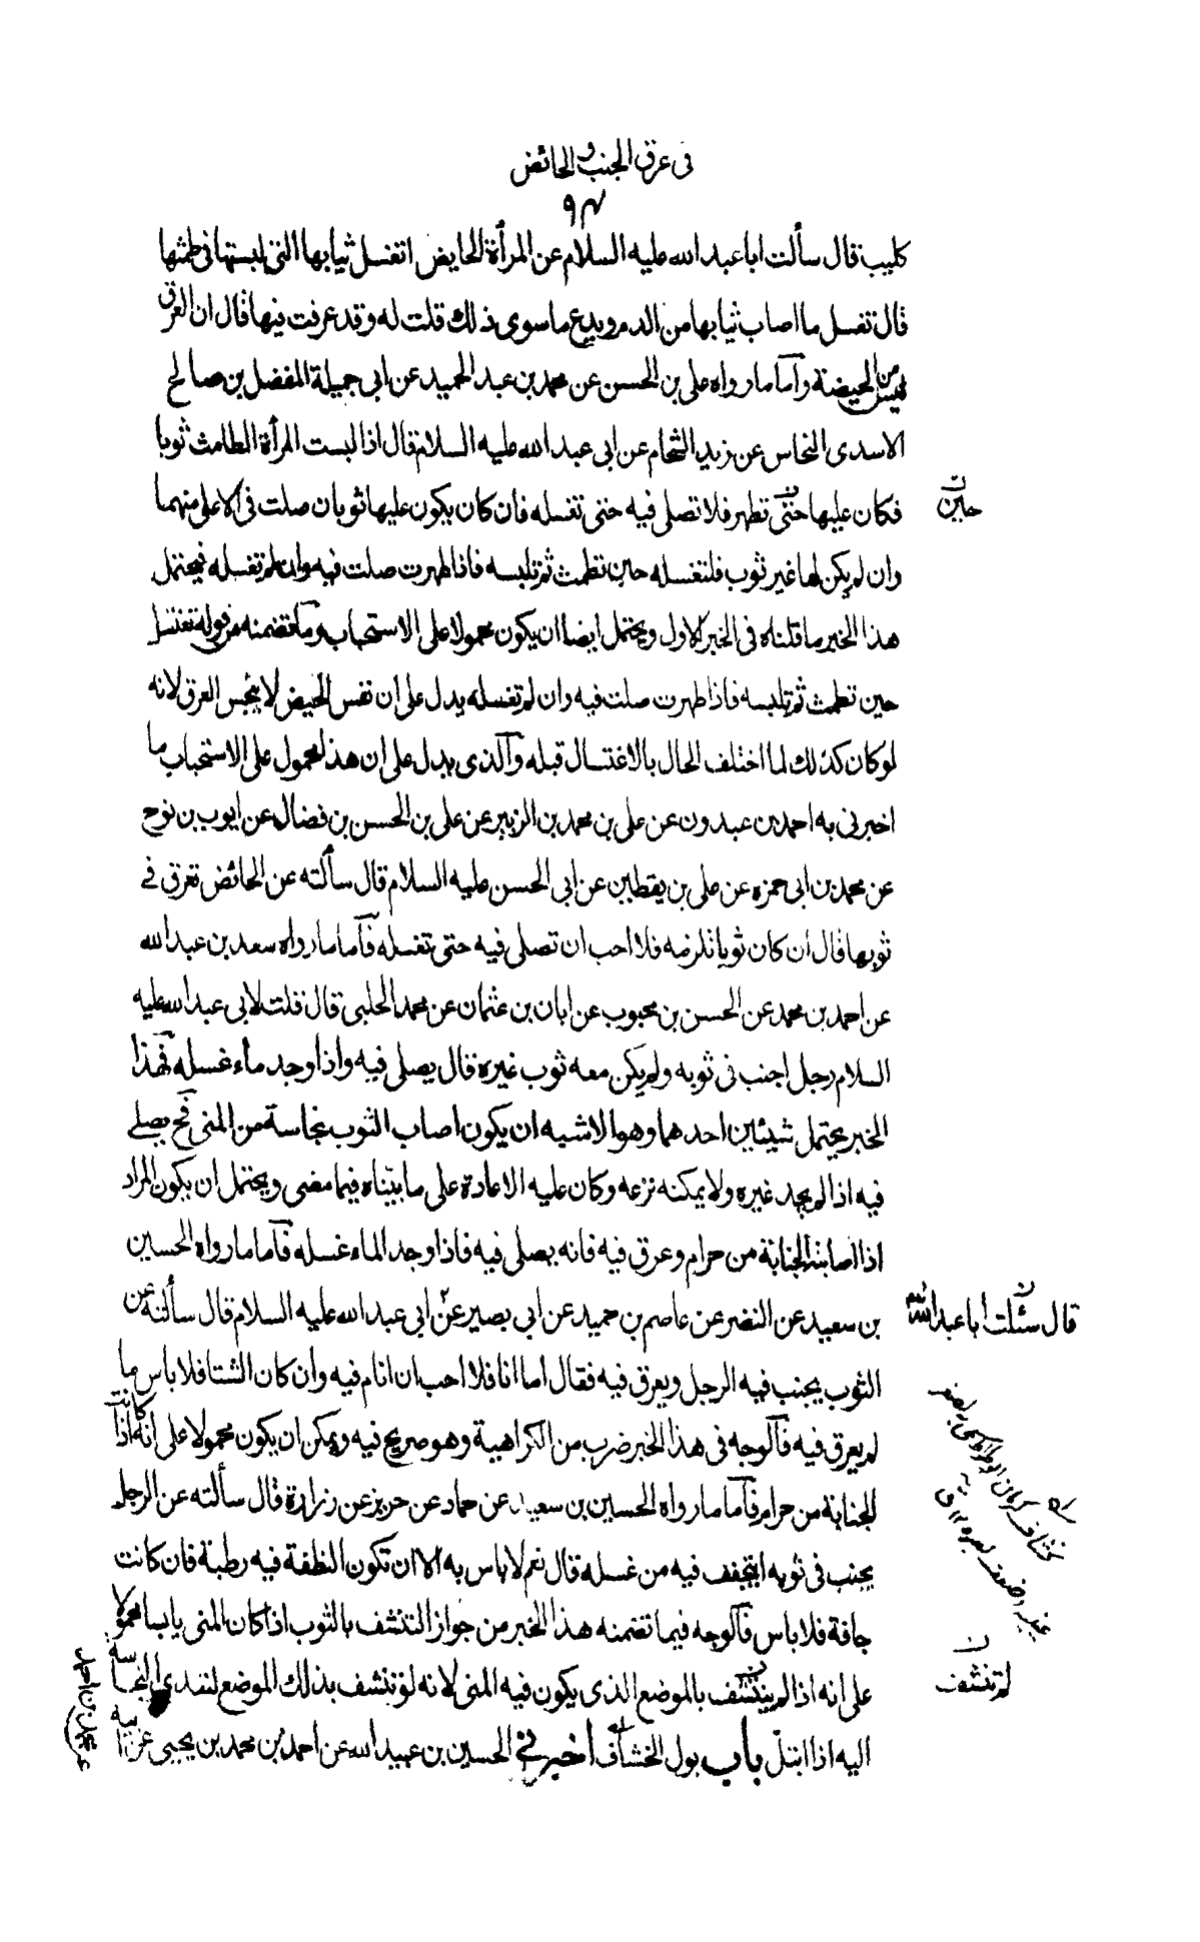 فى عرق الجنب والحائض
٩٤
كليب قال سألت ابا عبد الله عليه السلام عن المرأة الحايض اتغسل ثيابها التى لبستها فى طمثها
قال تغسل ما اصاب ثيابها من الدم ويدع ما سوى ذلك قلت له وقد عرقت فيها قال ان العرق
ليس من الحيضة وآما ما رواه على بن الحسن عن محمد بن عبد الحميد عن ابى جميلة المفضل بن صالح
الاسدى النخاس عن زيد الشحام عن ابى عبد الله عليه السلام قال اذا لبست المرأة الطامث ثوبا
فكان عليها حتى تطهر فلا تصلى فيه حتى تغسله فان كان يكون عليها ثوبان صلت فى الاعلى منهما
حين
وان لم يكن لها غير ثوب فلتغسله حين تطمث ثم تلبسه فاذا طهرت صلت فيه وان لم تغسله فيحتمل
هذا الخبر ما قلناه فى الخبر الاول ويحتمل ايضا ان يكون محمولا على الاستحباب وما تضمنه من قوله تغتسل
حين تطمث ثم تلبسه فاذا طهرت صلت فيه وان لم تغسله يدل على ان نفس الحيض لا ينجس العرق لانه
لو كان كذلك لما اختلف الحال بالاغتسال قبله وآلذى يدل على ان هذا محمول على الاستحباب ما
اخبرنى به احمد بن عبدون عن على بن محمد بن الزبير عن على بن الحسن بن فضال عن ايوب بن نوح
عن محمد بن ابى حمزه عن على بن يقطين عن ابى الحسن عليه السلام قال سألته عن الحائض تعرق فى
ثوبها قال ان كان ثوبا تلزمه فلا احب ان تصلى فيه حتى تغسله فآما ما رواه سعد بن عبد الله
عن احمد بن محمد عن الحسن بن محبوب عن ابان بن عثمان عن محمد الحلبى قال قلت لابى عبد الله عليه
السلام رجل اجنب فى ثوبه ولم يكن معه ثوب غيره قال يصلى فيه واذا وجد ماء غسله فهذا
الخبر يحتمل شيئين احدهما وهو الاشبه ان يكون اصاب الثوب نجاسة من المنى فح يصلى
فيه اذا لم يجد غيره ولا يمكنه نزعه وكان عليه الاعادة على ما بيّناه فيما مضى ويحتمل ان يكون المراد
اذا اصابته الجنابة من حرام وعرق فيه فانه يصلى فيه فاذا وجد الماء غسله فآما ما رواه الحسين
بن سعيد عن النضر عن عاصم بن حميد عن ابى بصير عن ابى عبد الله عليه السلام قال سألته عن
قال سئلت أبا عبد الله
الثوب يجنب فيه الرجل ويعرق فيه فقال اما انا فلا احب ان انام فيه وان كان الشتا فلا باس ما
لم يعرق فيه فآلوجه فى هذا الخبر ضرب من الكراهية وهو صريح فيه ويمكن ان يكون محمولا على انه اذا كانت
الجنابة من حرام فآما ما رواه الحسين بن سعيد عن حماد عن حريز عن زرارة قال سألته عن الرجل
يجنب فى ثوبه ايتجفف فيه من غسله قال نعم لا باس به الا ان تكون النطفة فيه رطبة فان كانت
جافة فلا باس فآلوجه فيما تضمنه هذا الخبر من جواز التنشف بالثوب اذا كان المنى يابسا محمولا
على انه اذا لم يتنشف بالموضع الذى يكون فيه المنى لانه لو تنشف بذلك الموضع لتعدى النجاسة
لم تنشف
اليه اذا ابتلّ باب بول الخشاف اخبرنى الحسين بن عبيد الله عن احمد بن محمد بن يحيى عن ابيه
عن محمد بن احمد